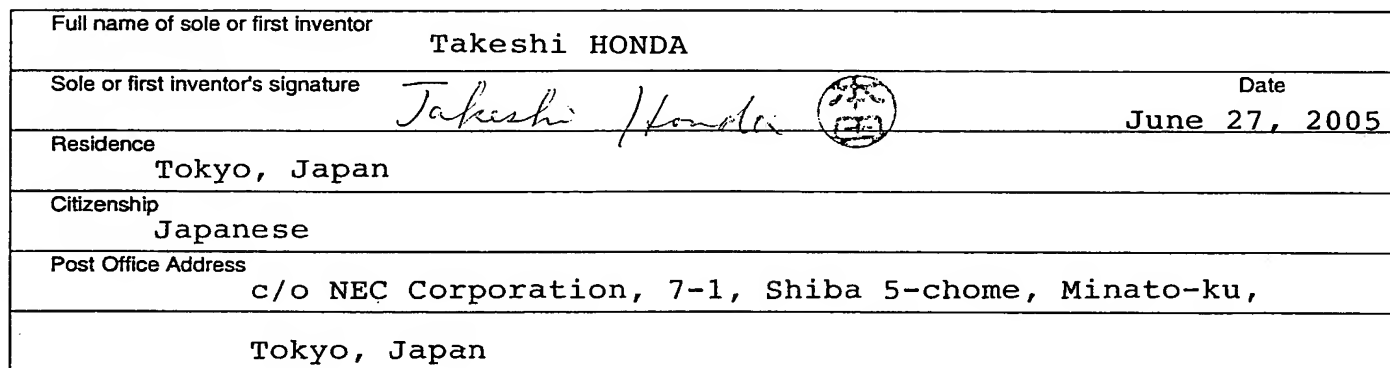 Full name of sole or first inventor
Takeshi HONDA
Sole or first inventor's signature
Takeshi Honda
Date
June 27, 2005
Residence
Tokyo, Japan
Citizenship
Japanese
Post Office Address
c/o NEC Corporation, 7-1, Shiba 5-chome, Minato-ku,
Tokyo, Japan